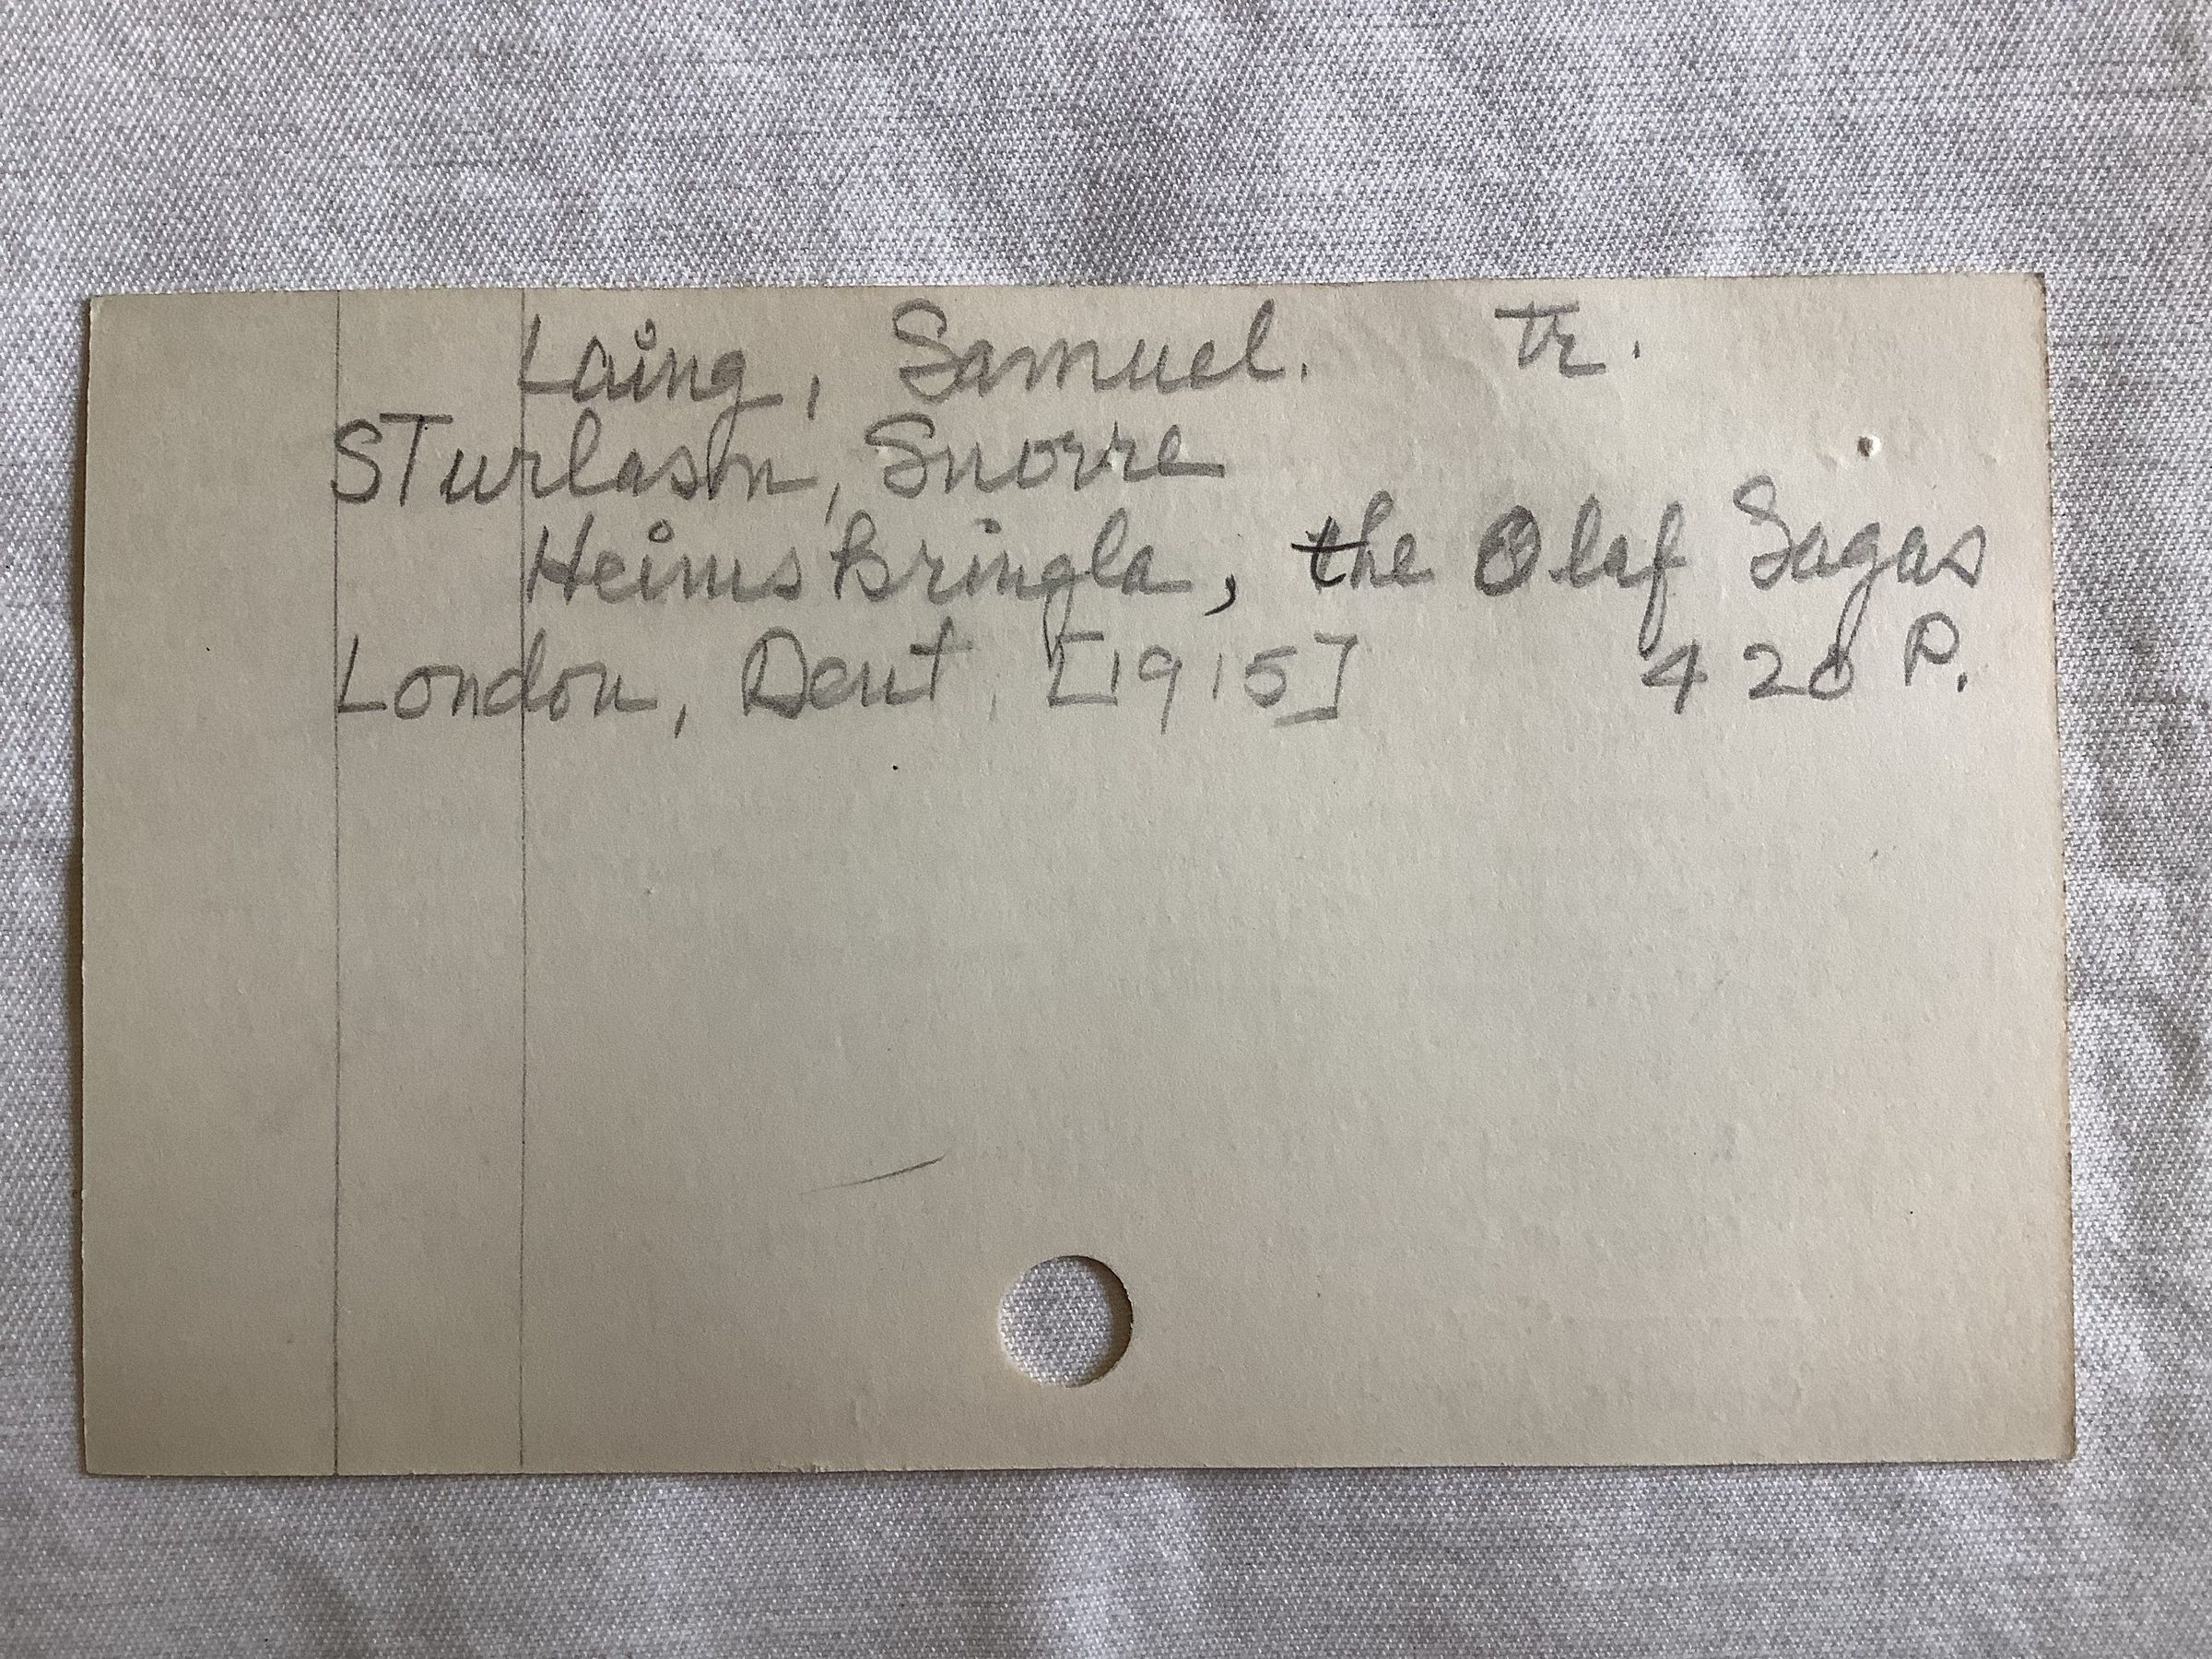 Laing, Samuel. tr.
STurlason, Snorre
Heimskringla, the Olaf Sagas
London, Dent, [1915] 420 P.